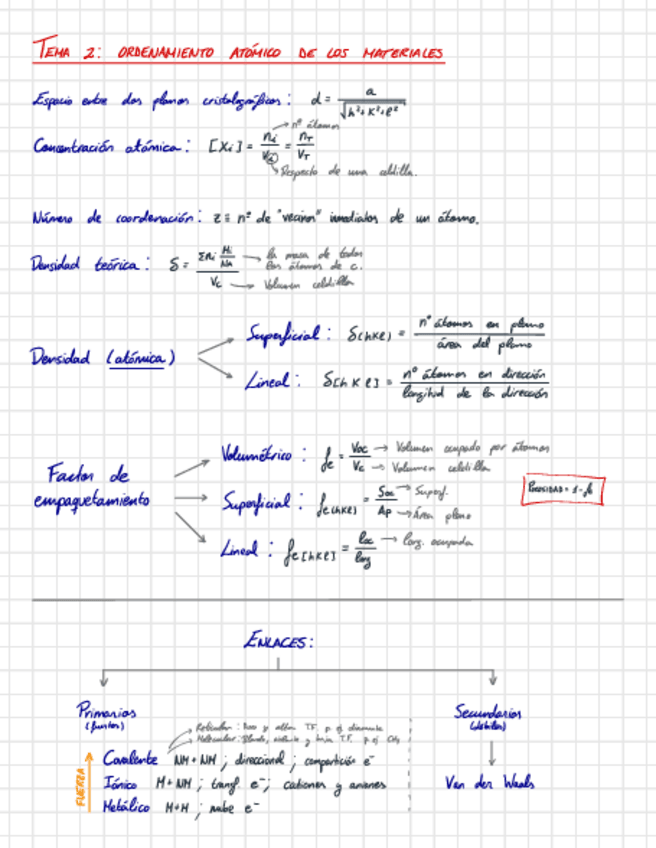 TEMA 2: ORDENAMIENTO ATÓMICO DE LOS MATERIALES
Espacio entre dos planos cristalográficos: d = a / √(h²+k²+l²)
Concentración atómica: [Xi] = ni / Vc = nT / VT
→ nº átomos
→ Respecto de una celdilla.
Número de coordenación: z ≡ nº de "vecinos" inmediatos de un átomo.
Densidad teórica: δ = Σni Mi/NA / Vc
→ la masa de todos los átomos de c.
→ Volumen celdilla
Densidad (atómica)
Superficial: δ(hkl) = nº átomos en plano / área del plano
Lineal: δ[hkl] = nº átomos en dirección / longitud de la dirección
Factor de empaquetamiento
Volumétrico: fe = Voc / Vc → Volumen ocupado por átomos
→ Volumen celdilla
Superficial: fe(hkl) = Soc / Ap → Superf.
→ Área plano
Lineal: fe[hkl] = loc / long → long. ocupada
POROSIDAD = 1 - fe
ENLACES:
Primarios
(fuertes)
Reticular: duro y altas TF. p. ej diamante
Molecular: blando, volátil y baja TF. p. ej CH₄
FUERZA
Covalente NM+NM; direccional; compartición e⁻
Iónico M+NM; transf. e⁻; cationes y aniones
Metálico M+M; nube e⁻
Secundarios
(débiles)
Van der Waals